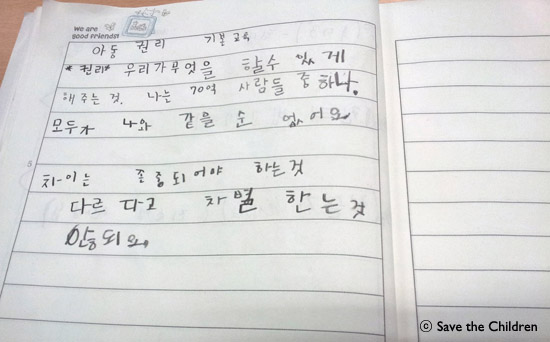 we are
good friends!
아동 권리 기본교육
*권리* 우리가 무엇을 할수 있게
해주는 것. 나는 70억 사람들 중 하나.
모두가 나와 같을 순 없어요
5
차이는 존중되어야 하는것
다르다고 차별 한는것
안되요
© Save the Children